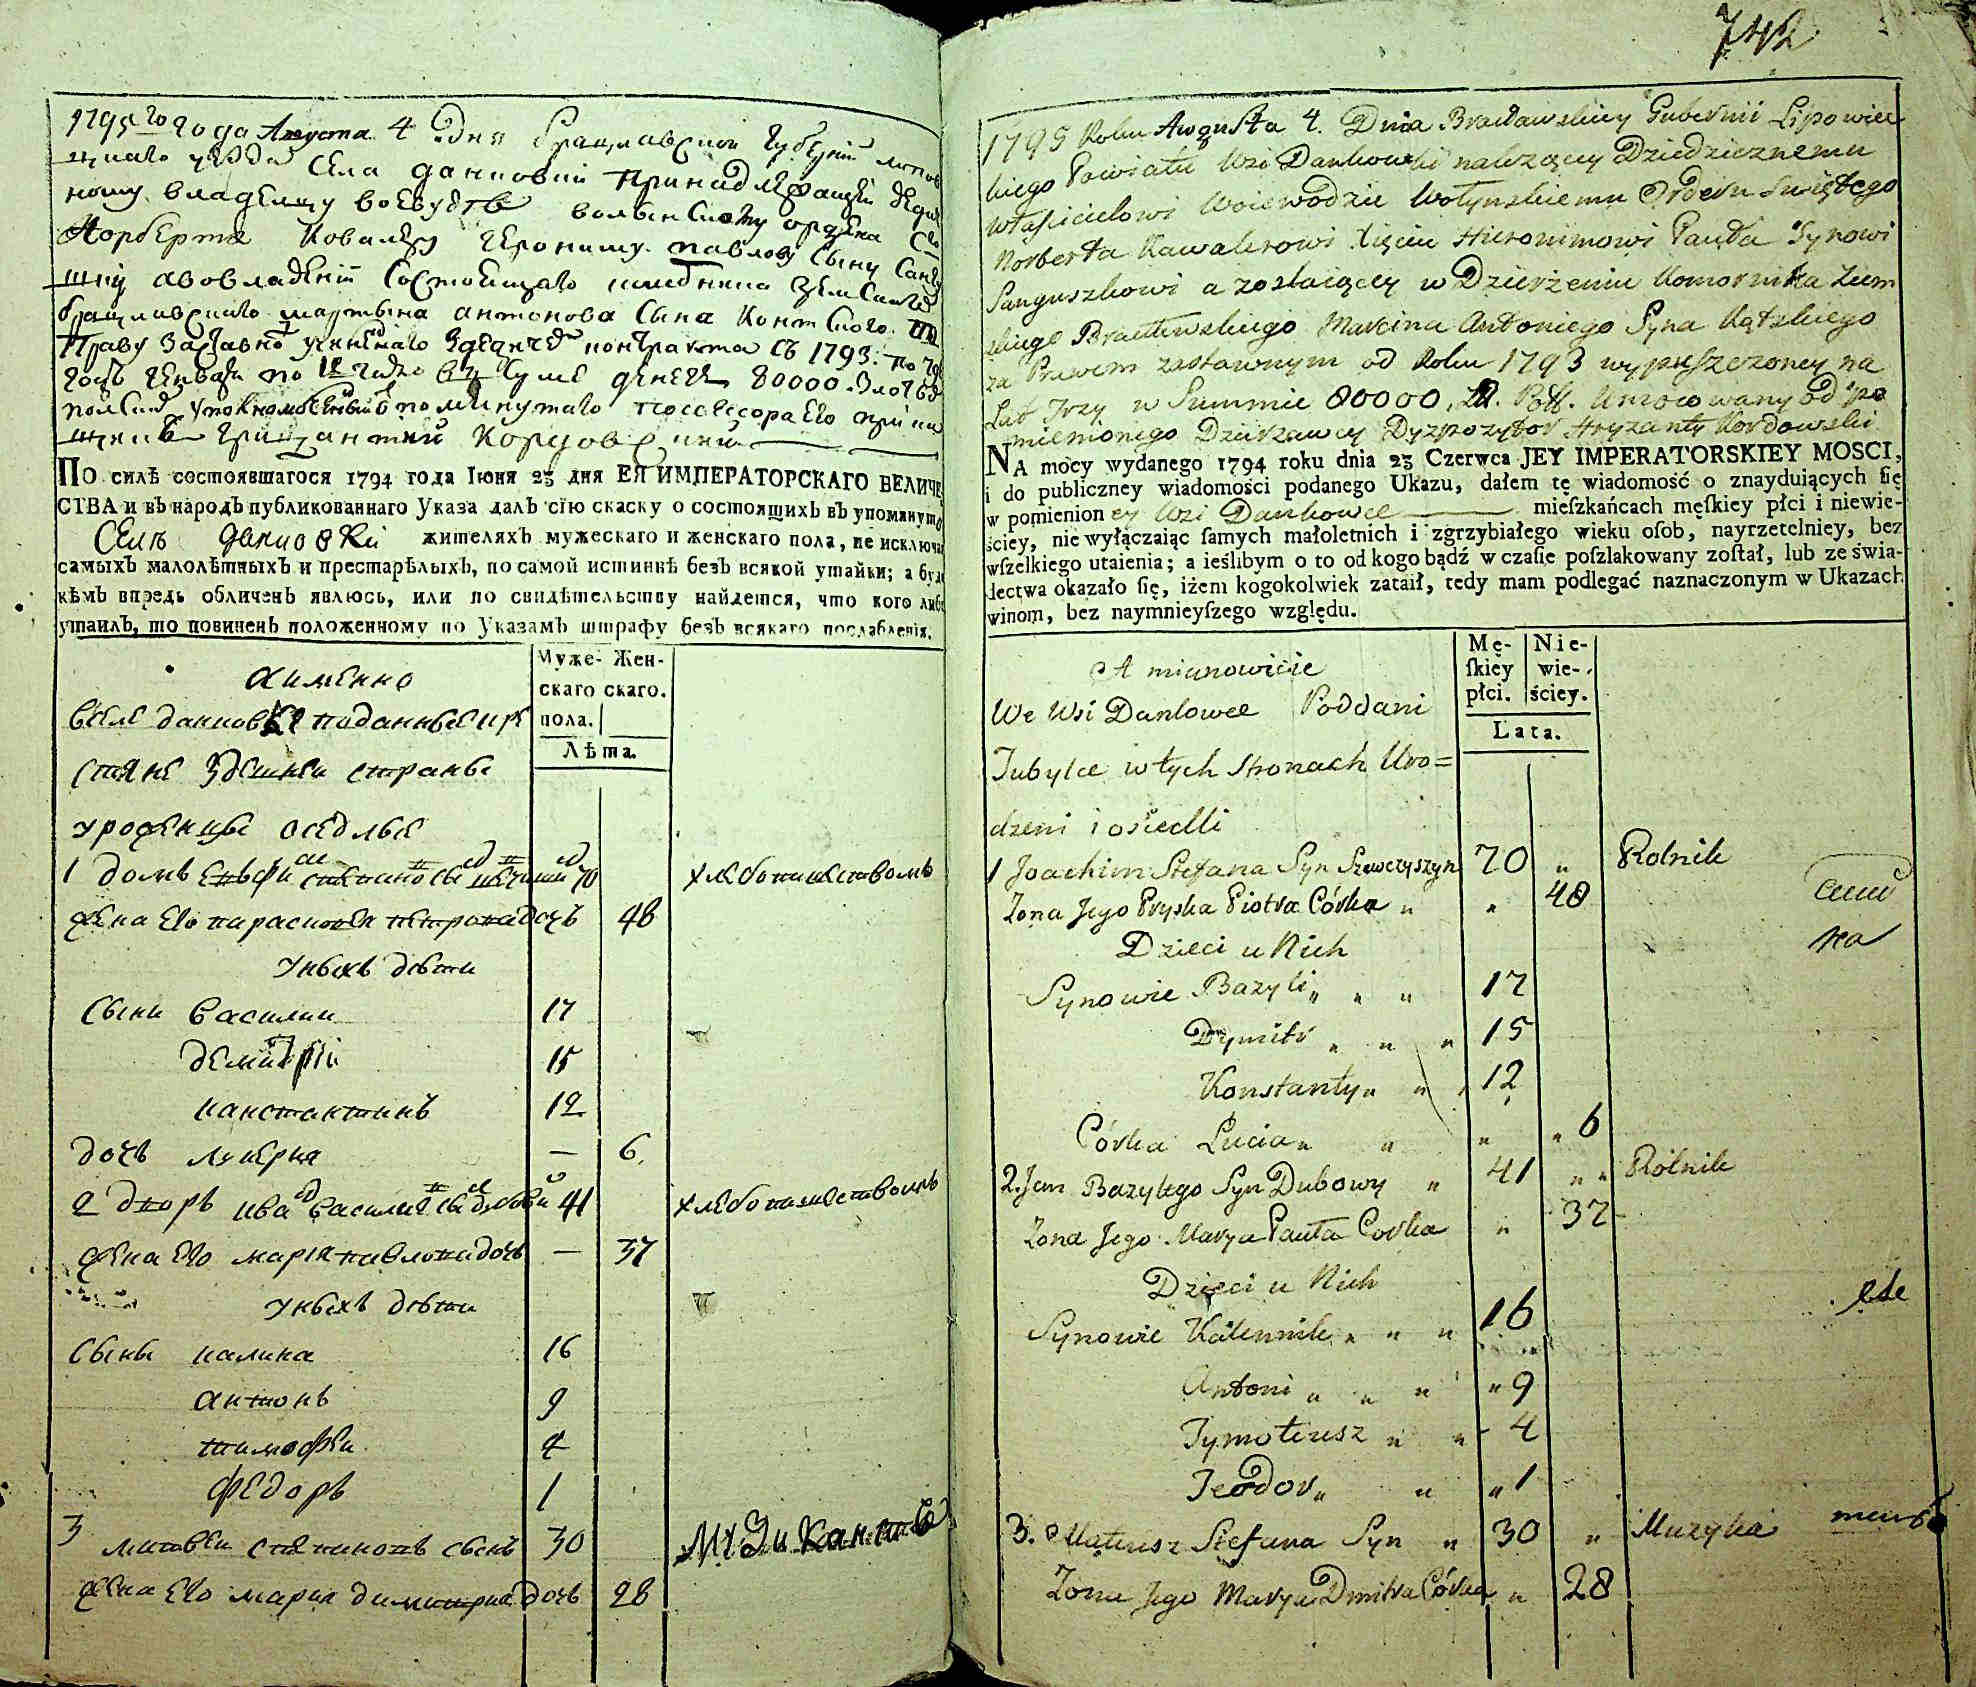 1795 го года Августа 4 дня Брацлавской губернии липов
цкаго уезда села данковки принадлежащей
ному владелцу воеводе волынскому ордена
Норберта кавалеру Иерониму павлову сыну Санг
авовладении состоящаго земскаго
брацлавскаго мартына антонова сына контскаго
Праву заставно контракта съ 1793
в суме денегъ 80000. злотых
поминутаго посессора его
По силѣ состоявшагося 1794 года Iюня 23 дня ЕЯ ИМПЕРАТОРСКАГО ВЕЛИЧЕ
СТВА и въ народъ публикованнаго Указа далъ сїю скаску о состоящихъ въ упомянуто
Селѣ данковки жителяхъ мужескаго и женскаго пола, не исключа
самыхъ малолѣтныхъ и престарѣлыхъ, по самой истиннѣ безъ всякой утайки; а буде
кѣмъ впредь обличенъ явлюсь, или по свидѣтельству найдется, что кого либо
утаилъ, то повиненъ положенному по Указамъ штрафу безъ всякаго послабленїя.
Муже- Жен-
скаго скаго.
пола.
Лѣта.
а именно
вселе данковке поданные
стяне здешней страны
уроженцы оседлые
1 домъ 70 хлебопашествомъ
жена его параско петрова дочь 48
у ныхъ дѣти
сыни василии 17
демитрїи 15
константинъ 12
дочь лукерия — 6.
2 дворъ ива василиев сы дубови 41 хлебопашествомъ
жена его мария павлова дочь — 37
у ныхъ дѣти
сыны калина 16
антонъ 9
тимофеи 4
федоръ 1
3 матвеи степановъ сынъ 30 Музикантъ
жена его мария димитрия дочь 28
742
1795 Roku Augusta 4. Dnia Bracławskiey Gubernii Lipowiec
kiego Powiatu Wsi Dankowki należący Dziedzicznemu
właścicielowi Woiewodzie Wołynskiemu Orderu Świętego
Norberta Kawalerowi Xięciu Hieronimowi Pawła Synowi
Sanguszkowi a zostaiącey w Dzierżeniu Komornika Ziem
skiego Bracławskiego Marcina Antoniego Syna Kątskiego
za Prawem zastawnym od Roku 1793 wypuszczoney na
Lat Trzy w Summie 80000, zł. Pols. Umocowany od po
mienionego Dzierzawcy Dyzpozytor Hryzanty Kordowski
NA mocy wydanego 1794 roku dnia 23 Czerwca JEY IMPERATORSKIEY MOSCI,
i do publiczney wiadomości podanego Ukazu, dałem tę wiadomość o znayduiących ſię
w pomienioney Wsi Dankowce mieſzkańcach męſkiey płci i niewie-
ściey, nie wyłączaiąc ſamych małoletnich i zgrzybiałego wieku oſob, nayrzetelniey, bez
wſzelkiego utaienia; a ieślibym o to od kogo bądź w czaſie poſzlakowany został, lub ze świa-
dectwa okazało ſię, iżem kogokolwiek zataił, tedy mam podlegać naznaczonym w Ukazach
winom, bez naymnieyſzego względu.
Mę- Nie-
ſkiey wie-
płci. ściey.
Lata.
A mianowicie
We Wsi Dankowce Poddani
Tubylce w tych stronach Uro=
dzeni i osiedli
1 Joachim Stefana Syn Szewczyszyn 70 „ Rolnik
Zona Jego Pryska Piotra Córka „ „ 48
Dzieci u Nich
Synowie Bazyli „ „ „ 17
Dymitr „ „ „ 15
Konstanty „ „ „ 12
Córka Lucia „ „ „ „ 6
2. Jan Bazylego Syn Dubowy „ 41 „ „ Rolnik
Zona Jego Marya Pauła Corka „ 37
Dzieci u Nich
Synowie Kalennik „ „ „ 16
Antoni „ „ „ „ 9
Tymoteusz „ „ 4
Teodor „ „ „ 1
3. Mateusz Stefana Syn „ 30 „ Muzyka
Zona Jego Marya Dmitra Córka „ 28